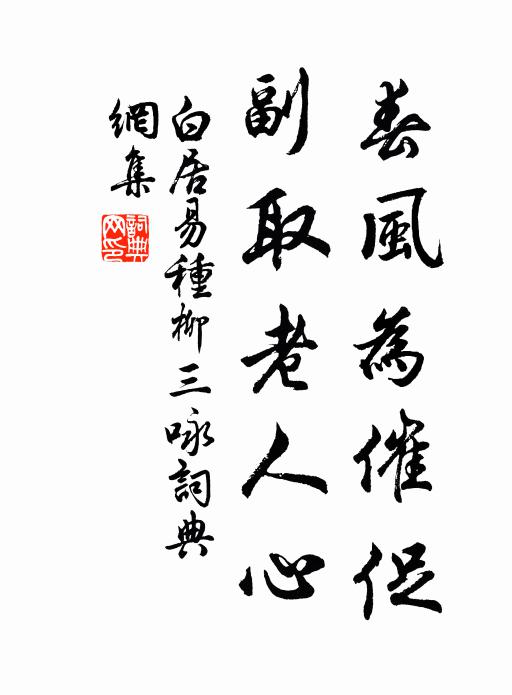 春風為催促
副取老人心
白居易種柳三咏詞典
網集
詞典
网印